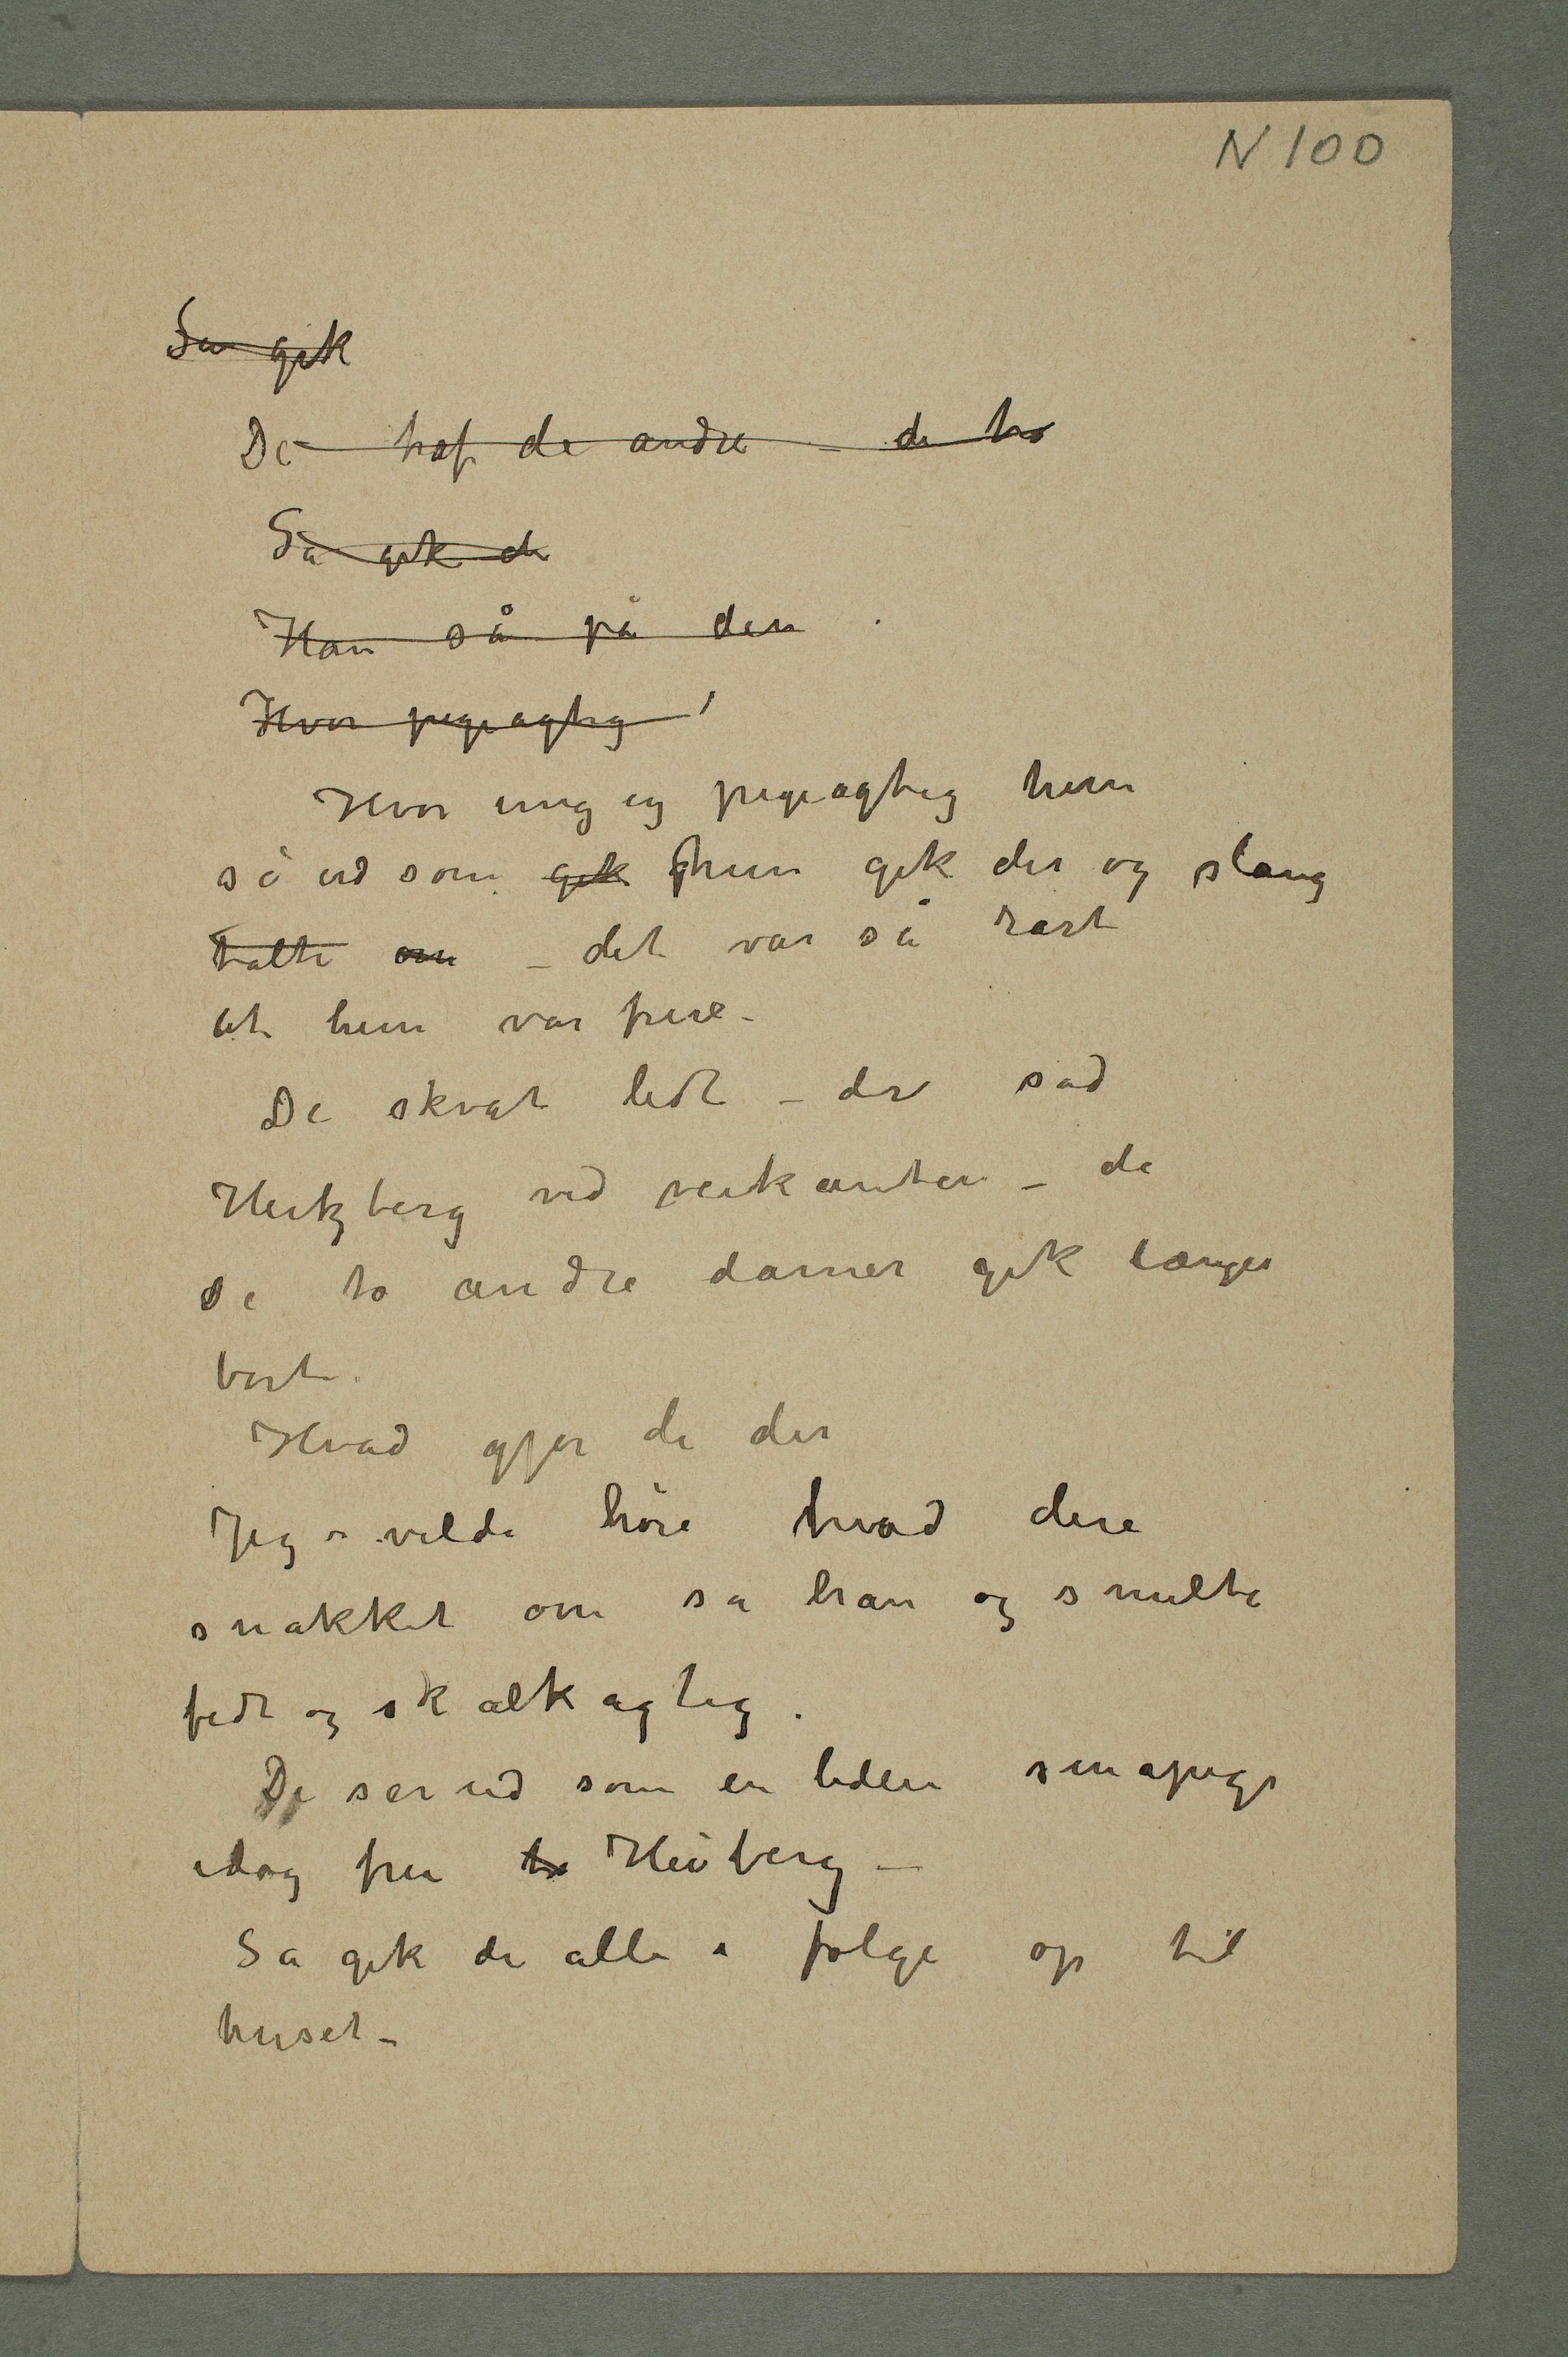 N 100
Så gik
De traf de andre – de to
Så gik de
Han så på den
Hvor pigeagtig!
Hvor ung og pigeagtig hun
så ud som gik hun gik der og slang
talte om – det var så rart
at hun var frue –
De skvat lidt – der sad
Hertzberg ved veikanten – de
de to andre damer gik længer
bort.
Hvad gjør de der
Jeg vilde høre hvad dere
snakket om sa han og smilte
fedt og skalkagtig.
De ser ud som en liden småpige
idag fru to Heiberg –
Så gik de alle i følge op til
huset –